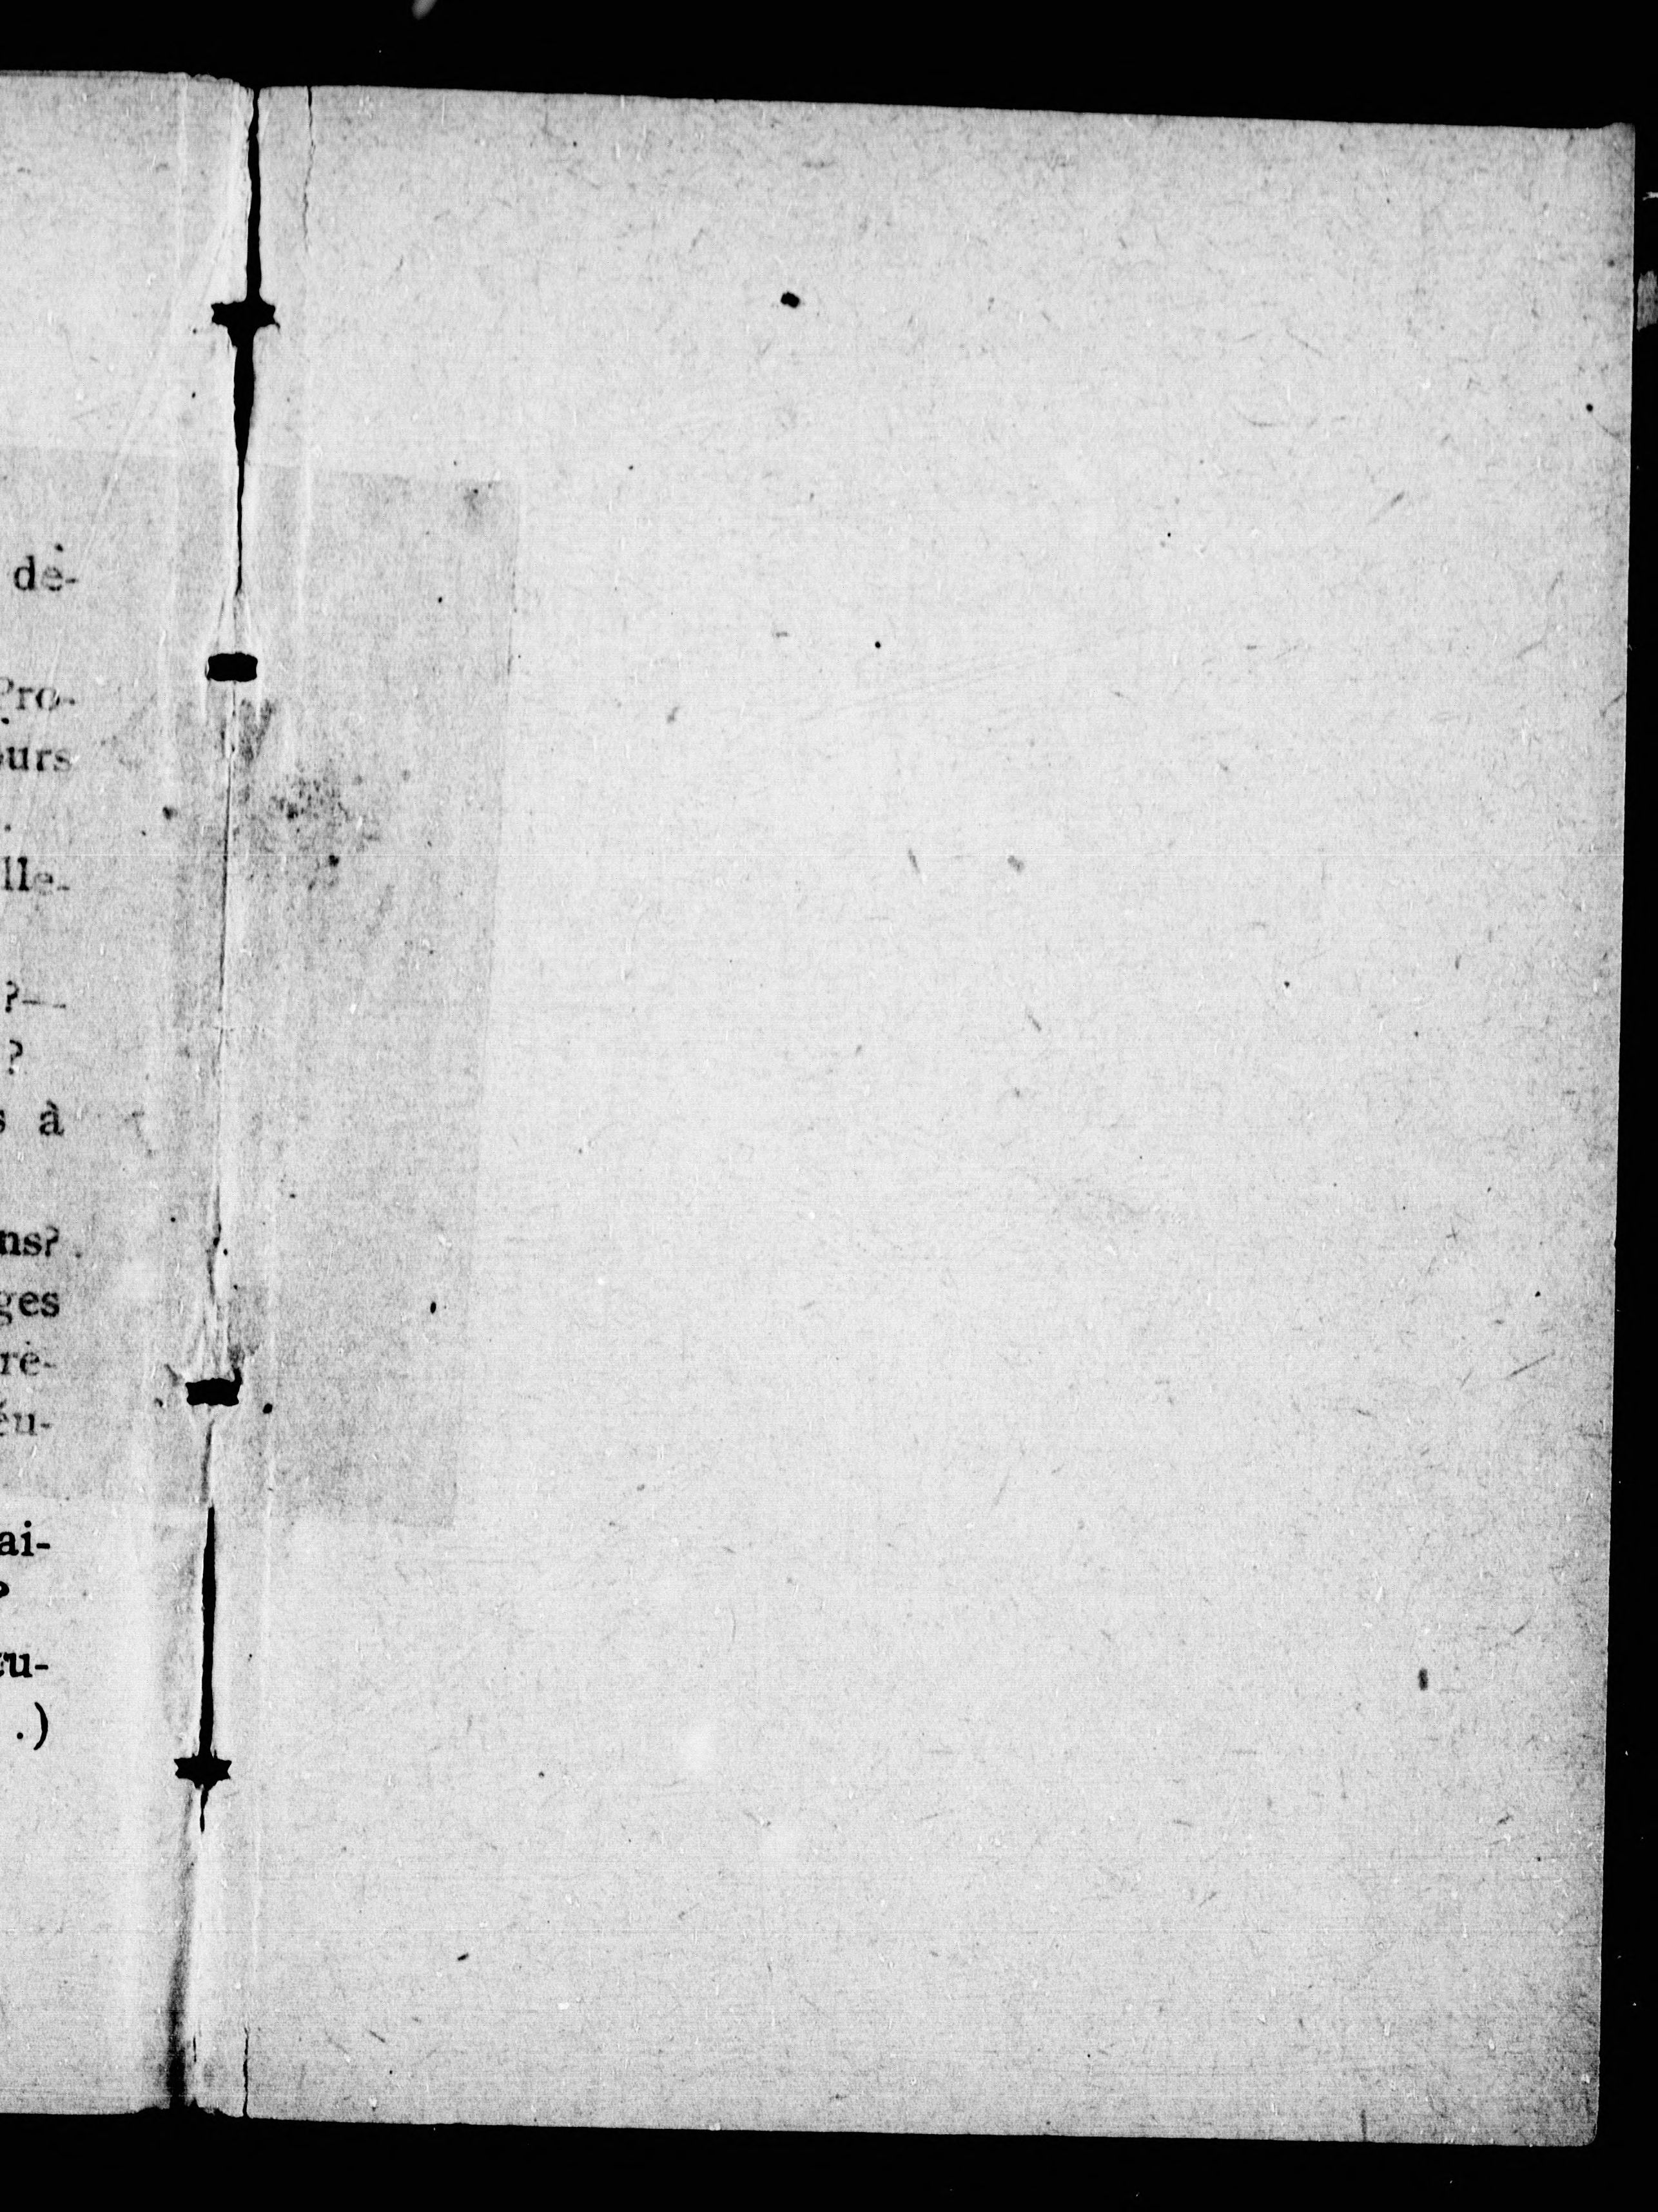 dé-
Pro-
ours
lle-
?—
?
s à
ns?
ges
ré-
éu-
ai-
?
.)